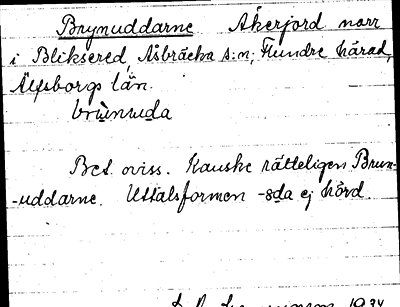 Brynuddarne Åkerjord norr
i Bliksered, Åsbräcka s:n; Flundre härad,
Älfsborgs län.
brùnuda
Bet. oviss. Kanske rätteligen Brun-
-uddarne. Uttalsformen -øda ej hörd.
1934